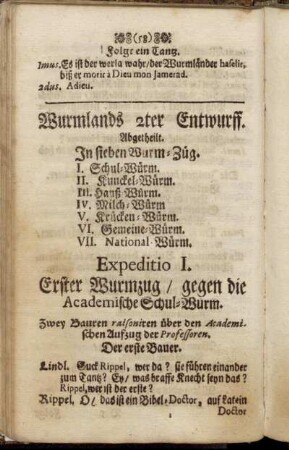 (58)
Folgt ein Tantz.
1mus. Es ist der werla wahr/der Wurmländer haselie,
biß er morir à Dieu mon Jamerad.
2dus. Adieu.
Wurmlands 2ter Entwurff.
Abgetheilt.
In sieben Wurm-Züg.
I. Schul-Würm.
II. Kunckel-Würm.
III. Hauß-Würm.
IV. Milch-Würm
V. Krücken-Würm.
VI. Gemeine-Würm.
VII. National-Würm.
Expeditio I.
Erster Wurmzug / gegen die
Academische Schul-Würm.
Zwey Bauren raisoniren über den Academi-
schen Aufzug der Professoren.
Der erste Bauer.
Lindl. Guck Rippel, wer da? sie führen einander
zum Tantz? Ey/ was braffe Knecht seyn das?
Rippel, wer ist der erste?
Rippel, O/ das ist ein Bibel-Doctor, auf Latein
Doctor